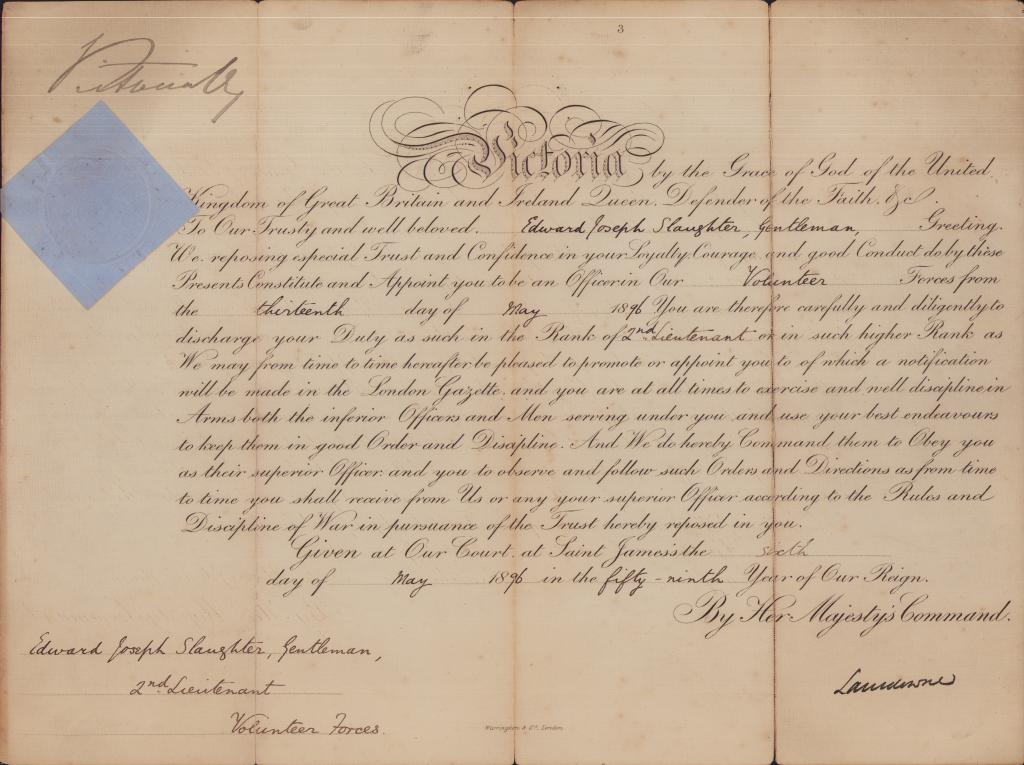 3
Victoria R
Victoria by the Grace of God of the United
Kingdom of Great Britain and Ireland Queen. Defender of the Faith. &c.
To Our Trusty and well beloved. Edward Joseph Slaughter, Gentleman, Greeting.
We. reposing especial Trust and Confidence in your Loyalty. Courage. and good Conduct do by these
Presents Constitute and Appoint you to be an Officer in Our Volunteer Forces from
the thirteenth day of May 1896 You are therefore carefully and diligently to
discharge your Duty as such in the Rank of 2nd Lieutenant or in such higher Rank as
We may from time to time hereafter be pleased to promote or appoint you to of which a notification
will be made in the London Gazette. and you are at all times to exercise and well discipline in
Arms both the inferior Officers and Men serving under you and use your best endeavours
to keep them in good Order and Discipline. And We do hereby Command them to Obey you
as their superior Officer. and you to observe and follow such Orders and Directions as from time
to time you shall receive from Us or any your superior Officer according to the Rules and
Discipline of War in pursuance of the Trust hereby reposed in you.
Given at Our Court. at Saint James's the sixth
day of May 1896 in the fifty-ninth Year of Our Reign.
By Her Majesty's Command.
Edward Joseph Slaughter, Gentleman,
2nd Lieutenant
Volunteer Forces.
Lansdowne
Warrington & Co. London